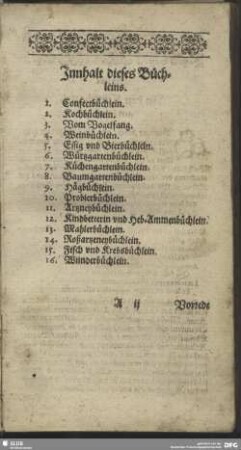 Innhalt dieses Büch-
leins.
1. Confectbüchlein.
2. Kochbüchlein.
3. Vom Vogelfang.
4. Weinbüchlein.
5. Essig vnd Bierbüchlein.
6. Würtzgartenbüchlein.
7. Küchengartenbüchlein.
8. Baumgartenbüchlein.
9. Hägbüchlein.
10. Probierbüchlein.
11. Artzneybüchlein.
12. Kindbetterin vnd Heb-Ammenbüchlein.
13. Mahlerbüchlein.
14. Roßartzeneybüchlein.
15. Fisch vnd Krebsbüchlein.
16. Wunderbüchlein.
A ij Vorrede
SLUB